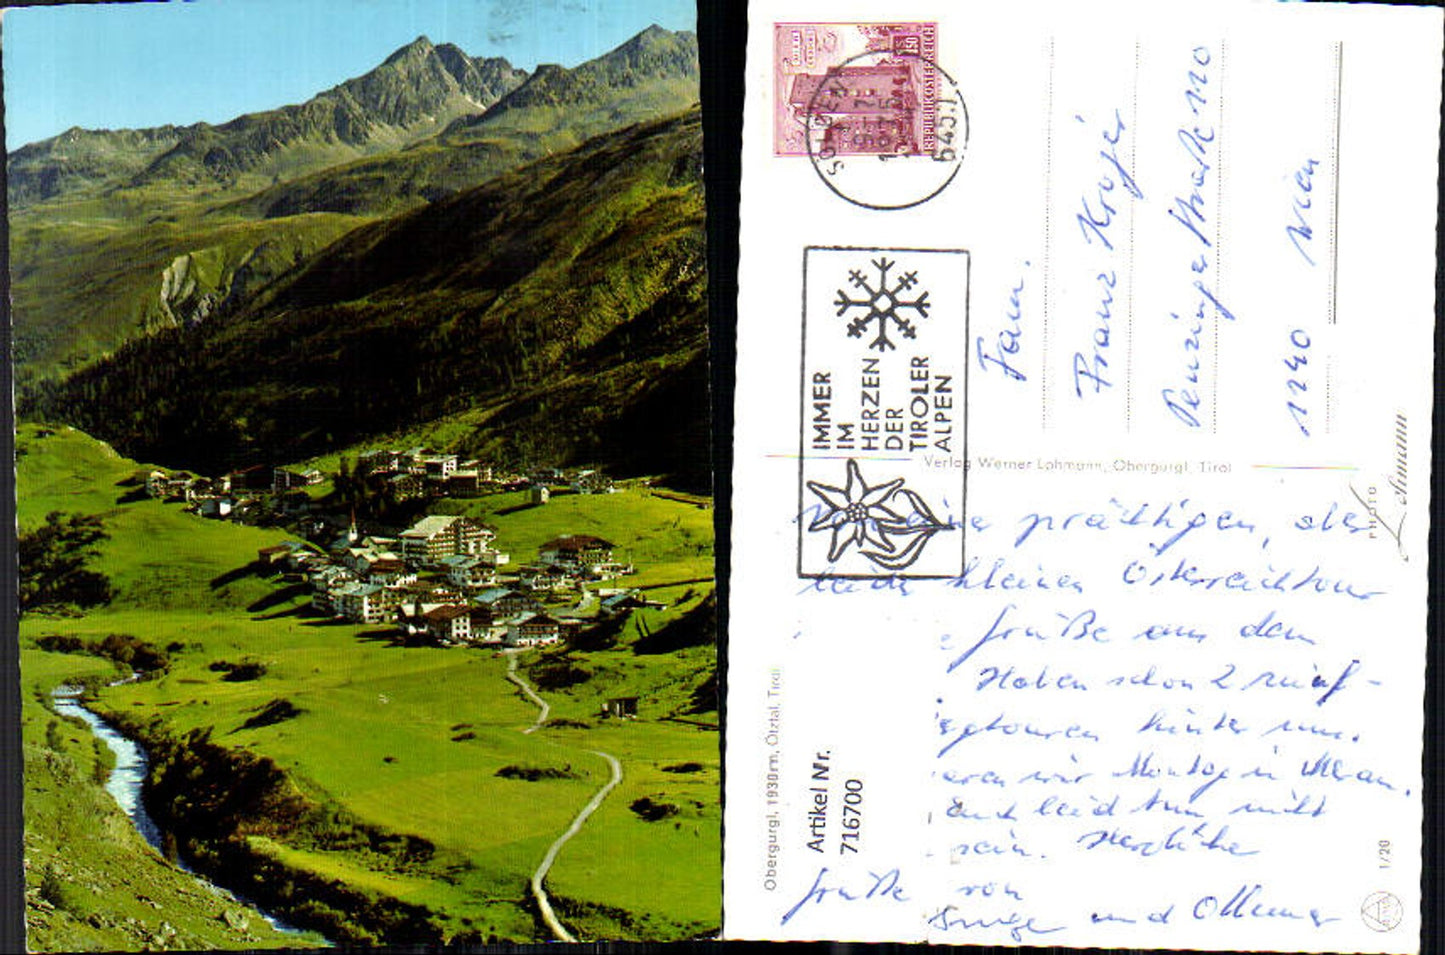 REPUBLIK ÖSTERREICH
1.50
SÖLDEN
6450
IMMER
IM
HERZEN
DER
TIROLER
ALPEN
Fam.
Franz
Penzingerstraße 110
1140 Wien
Verlag Werner Lohmann, Obergurgl, Tirol
PHOTO Lohmann
prächtigen, aber
leider kleinen Österreichtour
Grüße aus dem
Haben schon 2
hinter uns.
wir Montag in Meran.
leid tun mit
sein. Herzliche
Grüße von
Inge und Ottmar
Obergurgl, 1930m, Ötztal, Tirol
Artikel Nr.
716700
1/20